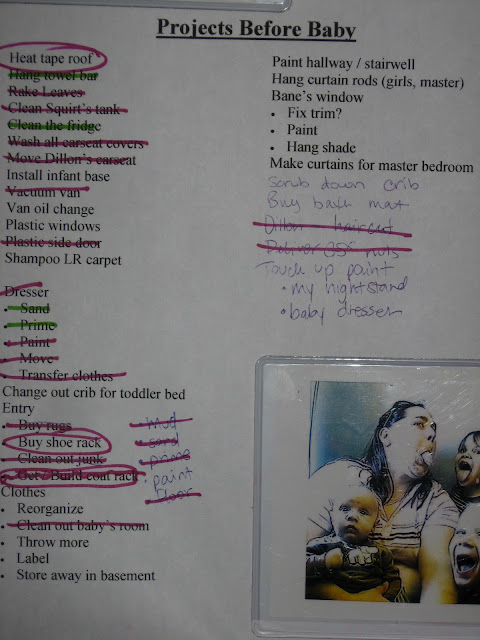 Projects Before Baby
Heat tape roof
Hang towel bar
Rake Leaves
Clean Squirt's tank
Clean the fridge
Wash all carseat covers
Move Dillon's carseat
Install infant base
Vacuum van
Van oil change
Plastic windows
Plastic side door
Shampoo LR carpet
Dresser
• Sand
• Prime
• Paint
• Move
• Transfer clothes
Change out crib for toddler bed
Entry
• Buy rugs
Buy shoe rack
• Clean out junk
• Get / Build coat rack
• mud
• sand
• prime
• paint
• floor
Clothes
• Reorganize
• Clean out baby's room
• Throw more
• Label
• Store away in basement
Paint hallway / stairwell
Hang curtain rods (girls, master)
Bane's window
• Fix trim?
• Paint
• Hang shade
Make curtains for master bedroom
Scrub down crib
Buy bath mat
Dillon haircut
Deliver nuts
Touch up paint
• my nightstand
• baby dresser